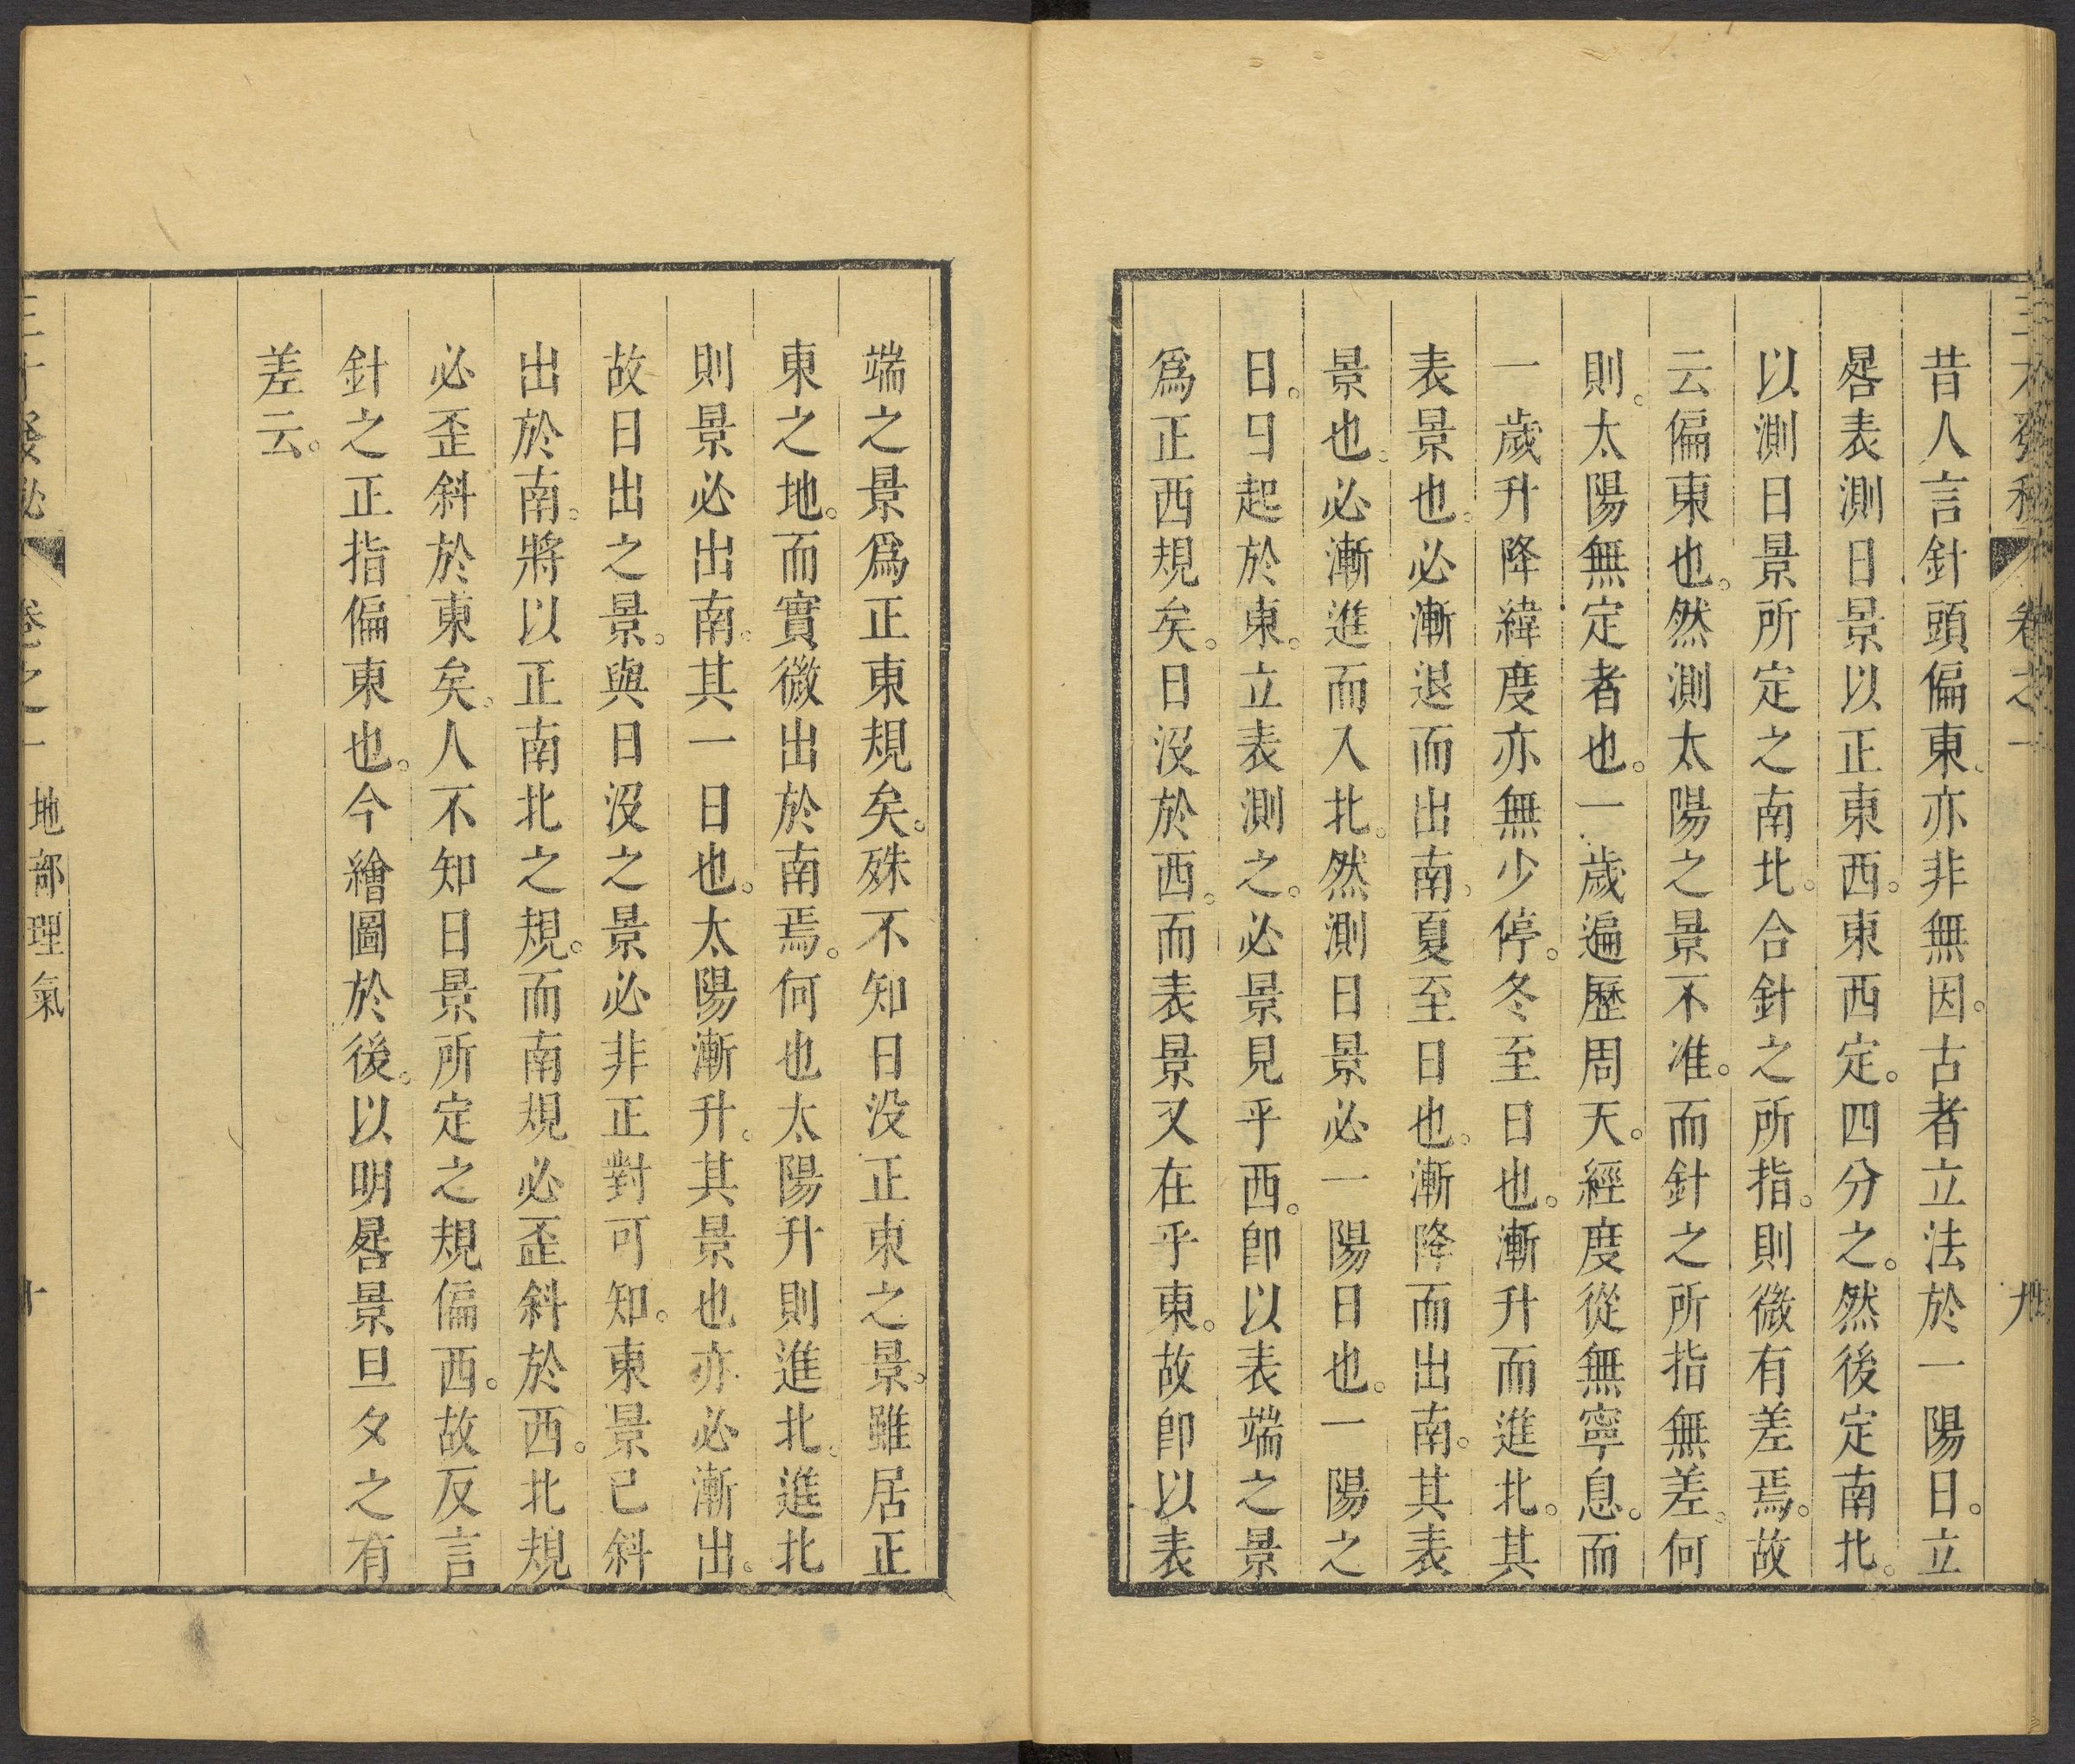 三才發秘 卷之一 九
昔人言針頭偏東亦非無因。古者立法於一陽日。立
晷表測日景以正東西。東西定。四分之。然後定南北。
以測日景所定之南北。合針之所指。則微有差焉。故
云偏東也。然測太陽之景不准。而針之所指無差。何
則。太陽無定者也。一歲遍歷周天。經度從無寧息。而
一歲升降緯度亦無少停。冬至日也。漸升而進北。其
表景也。必漸退而出南。夏至日也。漸降而出南。其表
景也。必漸進而入北。然測日景必一陽日也。一陽之
日。日起於東。立表測之。必景見乎西。卽以表端之景
爲正西規矣。日沒於西。而表景又在乎東。故卽以表
端之景爲正東規矣。殊不知日没正東之景。雖居正
東之地。而實微出於南焉。何也太陽升則進北。進北
則景必出南。其一日也。太陽漸升。其景也亦必漸出。
故日出之景。與日沒之景必非正對可知。東景已斜
出於南。將以正南北之規。而南規必歪斜於西。北規
必歪斜於東矣。人不知日景所定之規偏西。故反言
針之正指偏東也。今繪圖於後。以明晷景旦夕之有
差云。
三才發秘 卷之一 地部理氣 十